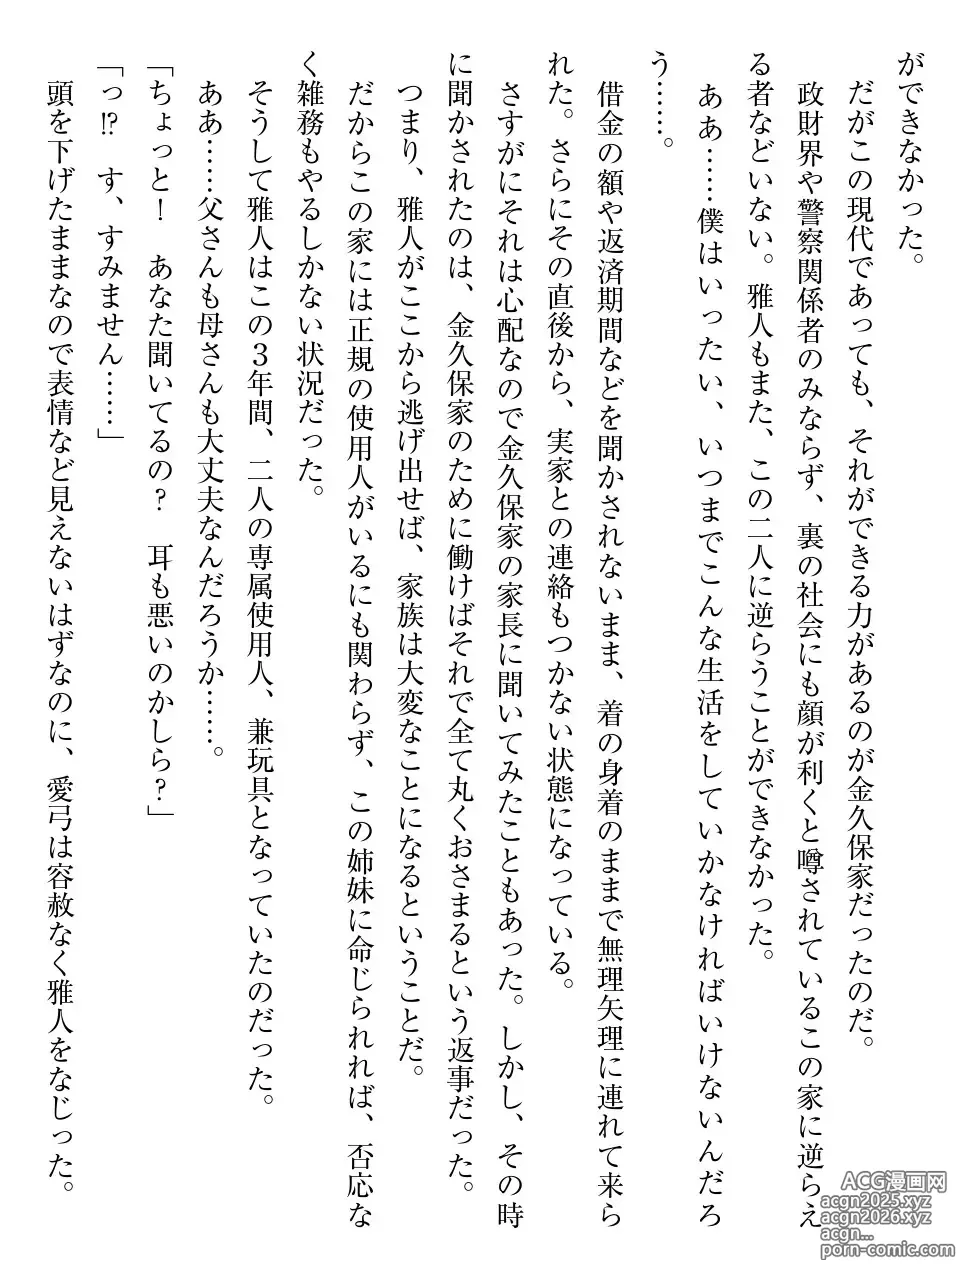 ができなかった。
だがこの現代であっても、それができる力があるのが金久保家だったのだ。
政財界や警察関係者のみならず、裏の社会にも顔が利くと噂されているこの家に逆らえ
る者などいない。雅人もまた、この二人に逆らうことができなかった。
ああ……僕はいったい、いつまでこんな生活をしていかなければいけないんだろ
う……。
借金の額や返済期間などを聞かされないまま、着の身着のままで無理矢理に連れて来ら
れた。さらにその直後から、実家との連絡もつかない状態になっている。
さすがにそれは心配なので金久保家の家長に聞いてみたこともあった。しかし、その時
に聞かされたのは、金久保家のために働けばそれで全て丸くおさまるという返事だった。
つまり、雅人がここから逃げ出せば、家族は大変なことになるということだ。
だからこの家には正規の使用人がいるにも関わらず、この姉妹に命じられれば、否応な
く雑務もやるしかない状況だった。
そうして雅人はこの３年間、二人の専属使用人、兼玩具となっていたのだった。
ああ……父さんも母さんも大丈夫なんだろうか……。
「ちょっと！　あなた聞いてるの？　耳も悪いのかしら？」
「っ!?　す、すみません……」
頭を下げたままなので表情など見えないはずなのに、愛弓は容赦なく雅人をなじった。
ACG漫画网
acgn2025.xyz
acgn2026.xyz
acgn...
porn-comic.com